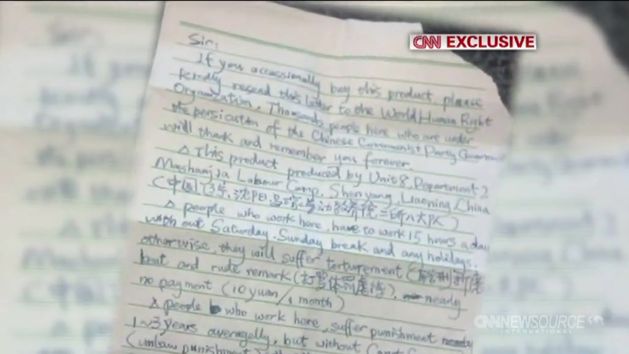 CNN EXCLUSIVE
Sir:
If you occassionally buy this product, please
kindly resend this letter to the World Human Right
Organization. Thousands people here who are under
the persicution of the Chinese Communist Party Government
will thank and remember you forever.
△ This product produced by Unit 8, Department 2
Mashanjia Labour Camp, Shenyang, Liaoning, China
(中国,辽宁,沈阳,马三家劳动教养院二所八大队)
△ people who work here, have to work 15 hours a day
with out Saturday, Sunday break and any holidays,
otherwise, they will suffer torturement (酷刑折磨),
beat and rude remark (打骂体罚虐待), nearly
no payment (10 yuan/1 month)
△ people who work here, suffer punishment
1~3 years averagelly, but without Court
(unlaw punishment)
CNNNEWSOURCE
INTERNATIONAL